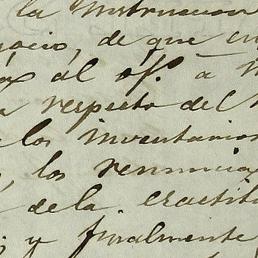 la Instruccion
ocio, de que en
al of.l a
respecto del
los inventarios
los renuncia
de la exactitu
y finalmente